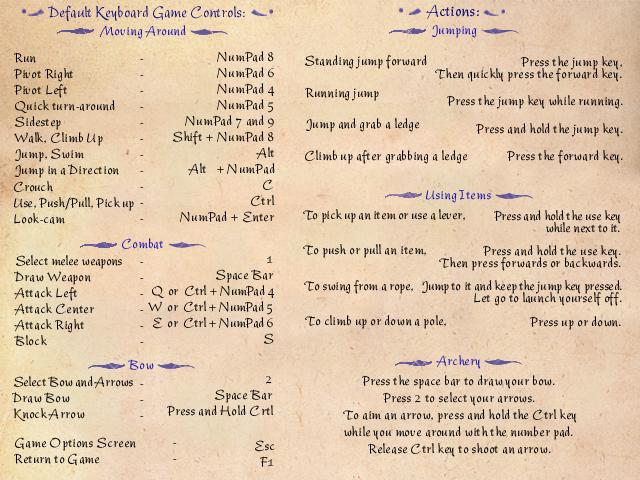 Default Keyboard Game Controls:
Moving Around
Run - NumPad 8
Pivot Right - NumPad 6
Pivot Left - NumPad 4
Quick turn-around - NumPad 5
Sidestep - NumPad 7 and 9
Walk, Climb Up - Shift + NumPad 8
Jump, Swim - Alt
Jump in a Direction - Alt + NumPad
Crouch - C
Use, Push/Pull, Pick up - Ctrl
Look-cam - NumPad + Enter
Combat
Select melee weapons - 1
Draw Weapon - Space Bar
Attack Left - Q or Ctrl + NumPad 4
Attack Center - W or Ctrl + NumPad 5
Attack Right - E or Ctrl + NumPad 6
Block - S
Bow
Select Bow and Arrows - 2
Draw Bow - Space Bar
Knock Arrow - Press and Hold Crtl
Game Options Screen - Esc
Return to Game - F1
Actions:
Jumping
Standing jump forward Press the jump key.
Then quickly press the forward key.
Running jump
Press the jump key while running.
Jump and grab a ledge Press and hold the jump key.
Climb up after grabbing a ledge Press the forward key.
Using Items
To pick up an item or use a lever, Press and hold the use key
while next to it.
To push or pull an item, Press and hold the use key.
Then press forwards or backwards.
To swing from a rope, Jump to it and keep the jump key pressed.
Let go to launch yourself off.
To climb up or down a pole, Press up or down.
Archery
Press the space bar to draw your bow.
Press 2 to select your arrows.
To aim an arrow, press and hold the Ctrl key
while you move around with the number pad.
Release Ctrl key to shoot an arrow.